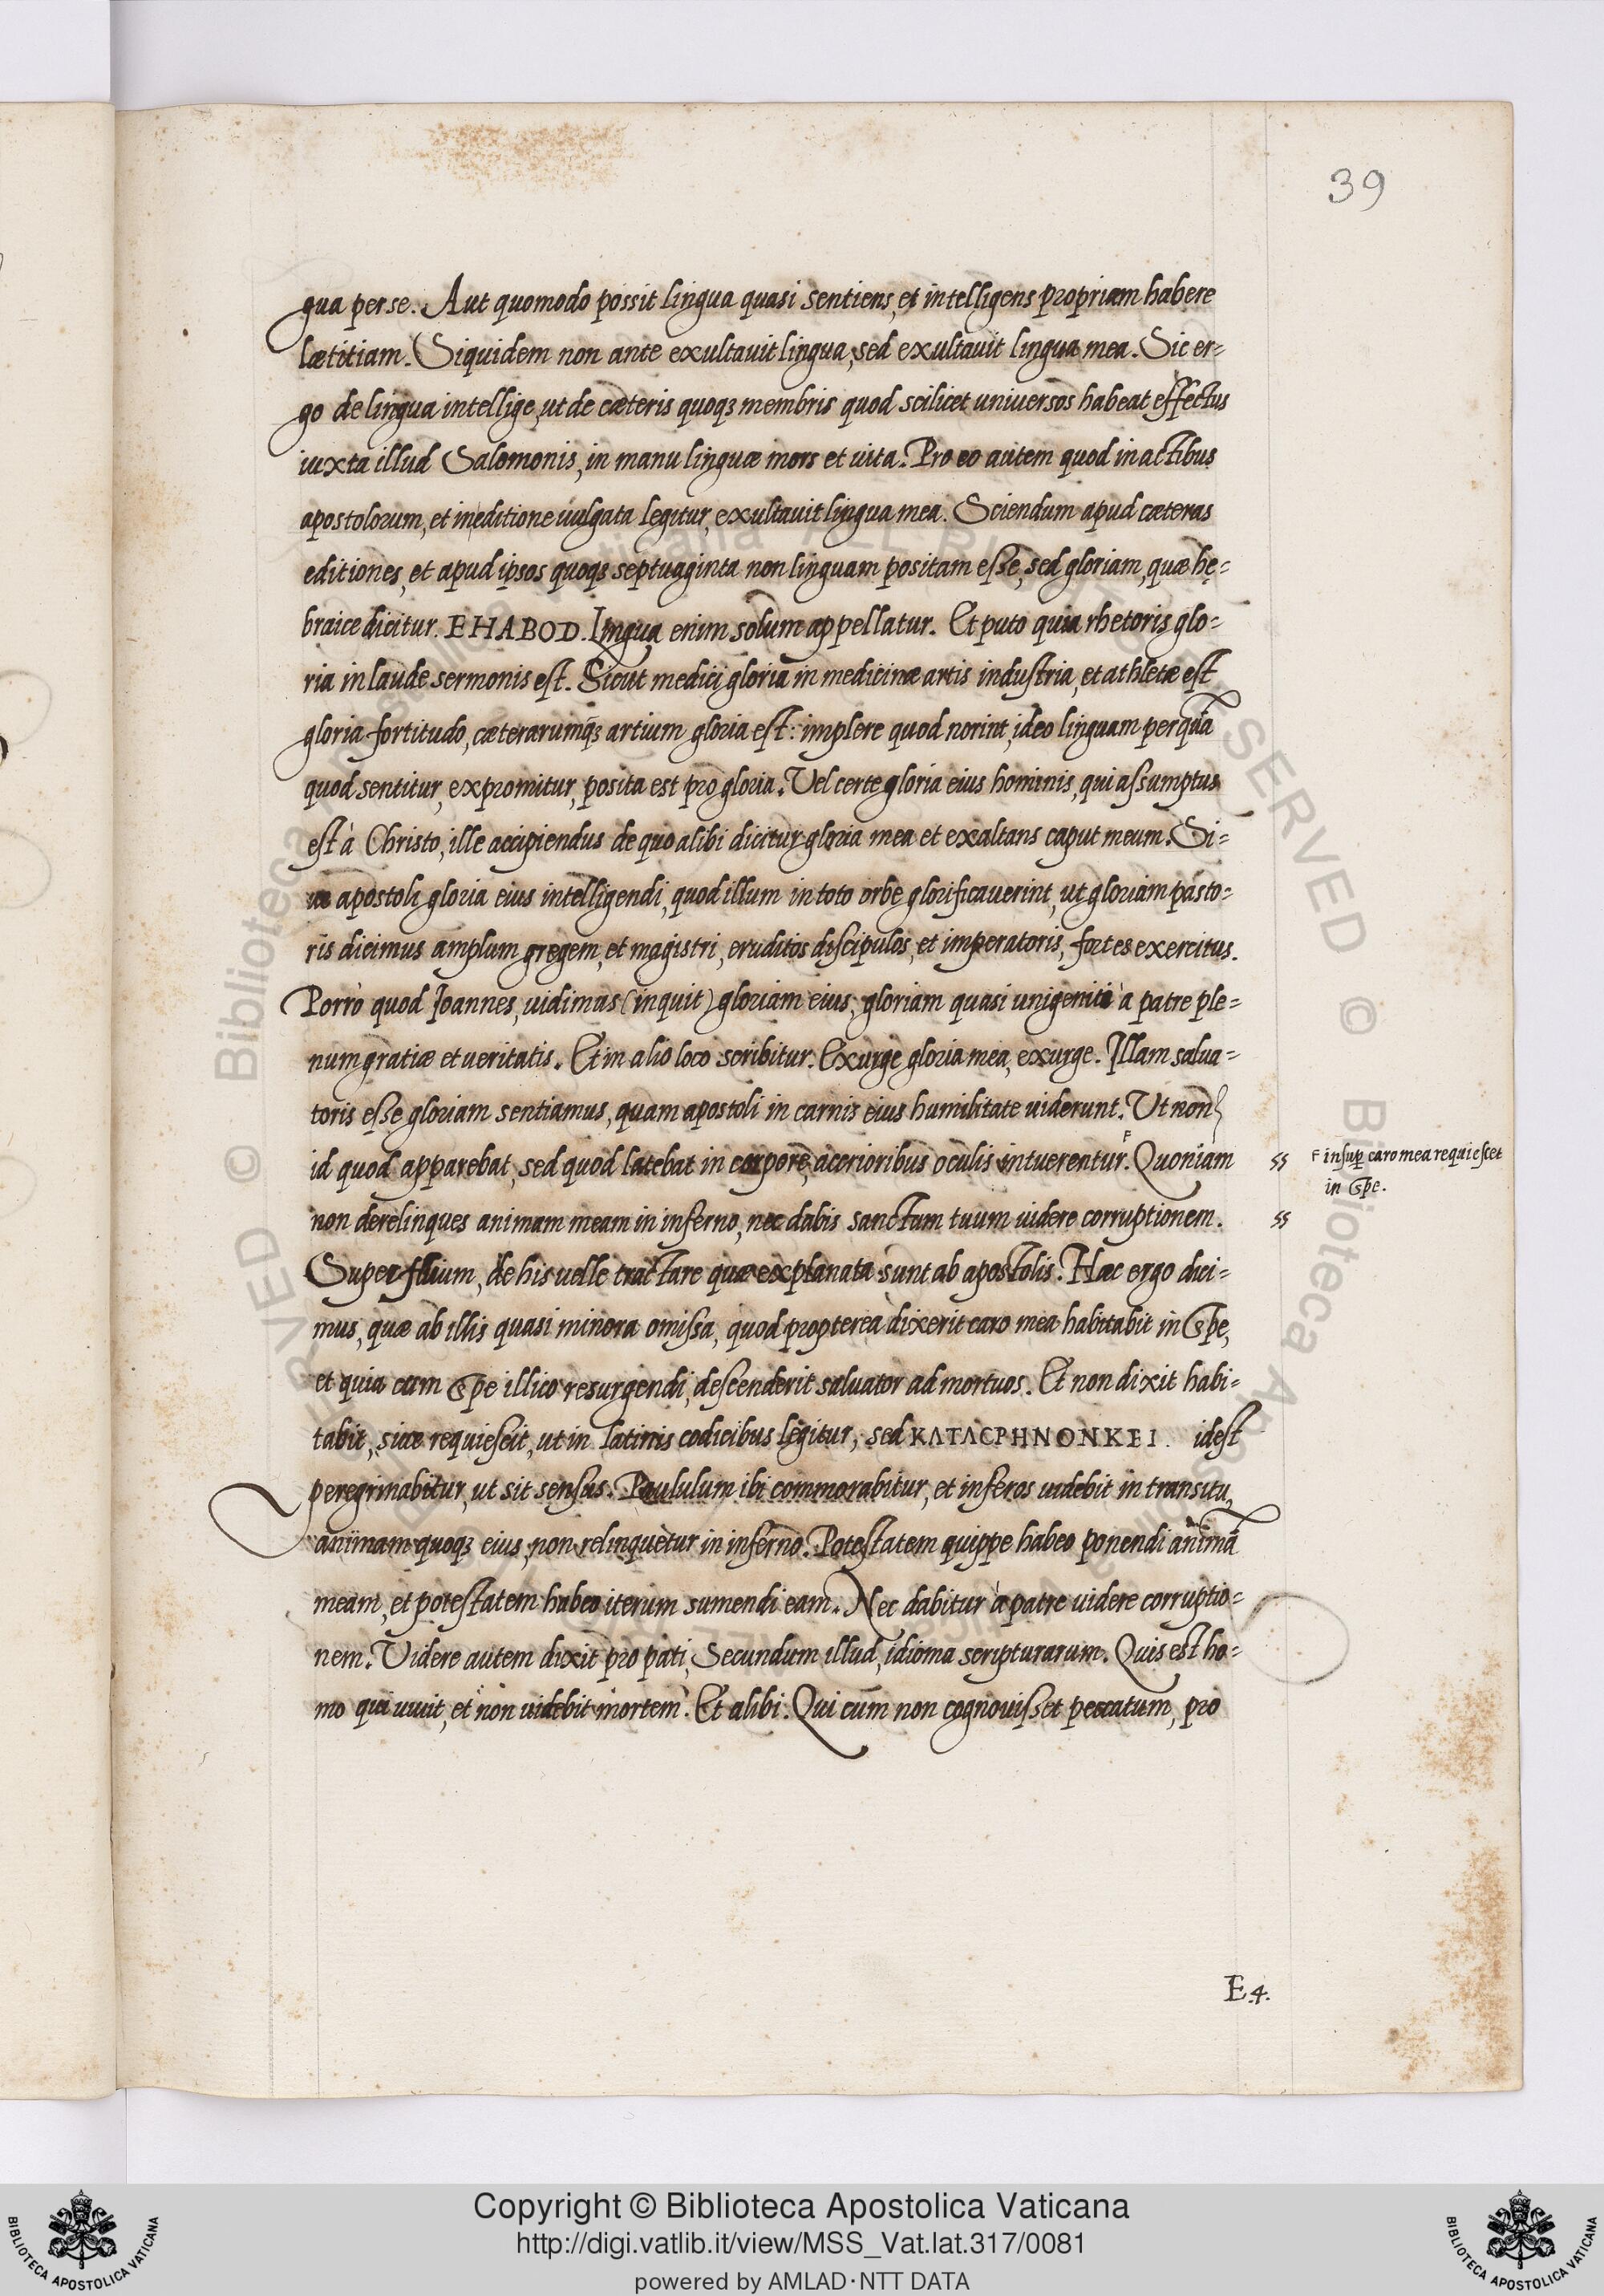 39
gua per se. Aut quomodo possit lingua quasi sentiens, et intelligens propriam habere
lætitiam. Siquidem non ante exultauit lingua, sed exultauit lingua mea. Sic er=
go de lingua intellige, ut de cæteris quoqȝ membris quod scilicet uniuersos habeat effectus
iuxta illud Salomonis, in manu linguæ mors et uita. Pro eo autem quod in actibus
apostolorum, et in editione uulgata legitur, exultauit lingua mea. Sciendum apud cæteras
editiones, et apud ipsos quoqȝ septuaginta non linguam positam esse, sed gloriam, quæ hę=
braice dicitur. EHABOD. Lingua enim solum appellatur. Et puto quia rhetoris glo=
ria in laude sermonis est. Sicut medici gloria in medicinæ artis industria, et athletæ est
gloria fortitudo, cæterarumqȝ artium gloria est: implere quod norint, ideo linguam per quā
quod sentitur, expromitur, posita est pro gloria. Vel certe gloria eius hominis, qui assumptus
est à Christo, ille accipiendus de quo alibi dicitur gloria mea et exaltans caput meum. Si=
ue apostoli gloria eius intelligendi, quod illum in toto orbe glorificauerint, ut gloriam pasto=
ris dicimus amplum gregem, et magistri, eruditos discipulos, et imperatoris, fortes exercitus.
Porrò quod Joannes, uidimus (inquit) gloriam eius, gloriam quasi unigeniti à patre ple=
num gratiæ et ueritatis. Et in alio loco scribitur. Exurge gloria mea, exurge. Illam salua=
toris esse gloriam sentiamus, quam apostoli in carnis eius humilitate uiderunt. Ut non
id quod apparebat, sed quod latebat in corpore, acerioribus oculis intuerentur. Quoniam
non derelinques animam meam in inferno, nec dabis sanctum tuum uidere corruptionem.
Superfluum, de his uelle tractare quæ explanata sunt ab apostolis. Hæc ergo dici=
mus, quæ ab illis quasi minora omissa, quod propterea dixerit caro mea habitabit in spe,
et quia cum spe illico resurgendi, descenderit saluator ad mortuos. Et non dixit habi=
tabit, siue requiescit, ut in latinis codicibus legitur, sed ΚΑΤΑCΡΗΝΟΝΚΕΙ. idest
peregrinabitur, ut sit sensus. Paululum ibi commorabitur, et inferos uidebit in transitu,
animam quoqȝ eius, non relinquetur in inferno. Potestatem quippe habeo ponendi animā
meam, et potestatem habeo iterum sumendi eam. Nec dabitur à patre uidere corruptio=
nem. Videre autem dixit pro pati, Secundum illud, idioma scripturarum. Quis est ho=
mo qui uiuit, et non uidebit mortem. Et alibi. Qui cum non cognouisset peccatum, pro
ss F insuꝑ caro mea requiescet
in spe.
ss
E.4.
Copyright © Biblioteca Apostolica Vaticana
http://digi.vatlib.it/view/MSS_Vat.lat.317/0081
powered by AMLAD·NTT DATA
BIBLIOTECA APOSTOLICA VATICANA
BIBLIOTECA APOSTOLICA VATICANA